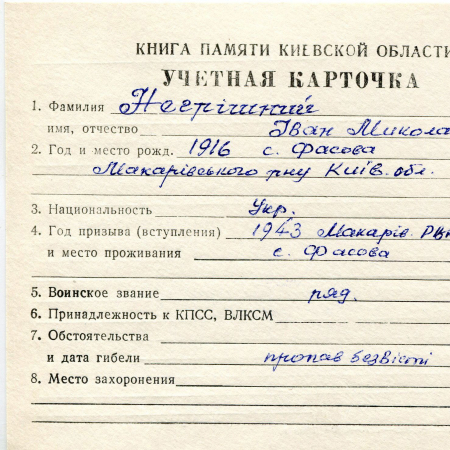 КНИГА ПАМЯТИ КИЕВСКОЙ ОБЛАСТИ
УЧЕТНАЯ КАРТОЧКА
1. Фамилия Негрішний
имя, отчество Іван Микола
2. Год и место рожд. 1916 с. Фасова
Макарівського р-ну Київ. обл.
3. Национальность Укр.
4. Год призыва (вступления) 1943 Макарів. РВК
и место проживания с. Фасова
5. Воинское звание ряд.
6. Принадлежность к КПСС, ВЛКСМ
7. Обстоятельства
и дата гибели пропав безвісті
8. Место захоронения